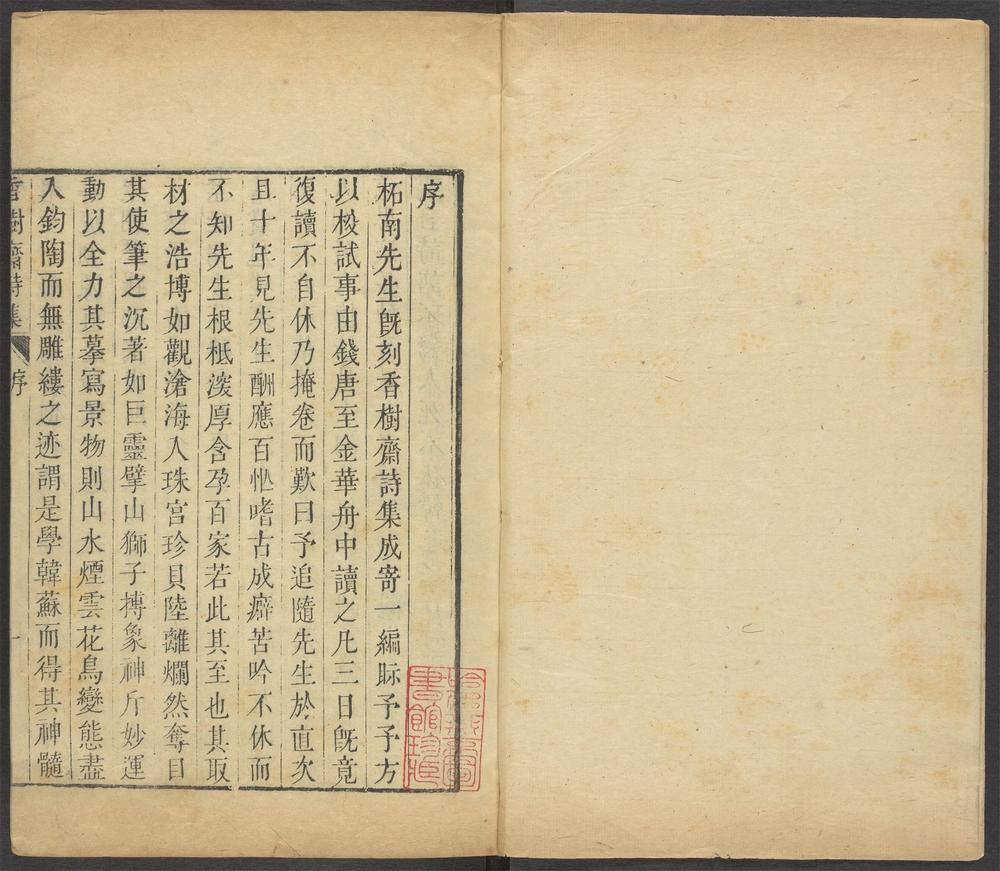 序
柘南先生旣刻香樹齋詩集成寄一編眎予予方
以校試事由錢唐至金華舟中讀之凡三日旣竟
復讀不自休乃掩卷而歎曰予追隨先生於直次
且十年見先生酬應百怱嗜古成癖苦吟不休而
不知先生根柢深厚含孕百家若此其至也其取
材之浩博如觀滄海入珠宮珍貝陸離爛然奪目
其使筆之沉著如巨靈擘山獅子搏象神斤妙運
動以全力其摹寫景物則山水煙雲花鳥變態盡
入鈞陶而無雕縷之迹謂是學韓蘇而得其神髓
香樹齋詩集
序
一
哈佛燕京圖
書館珍藏